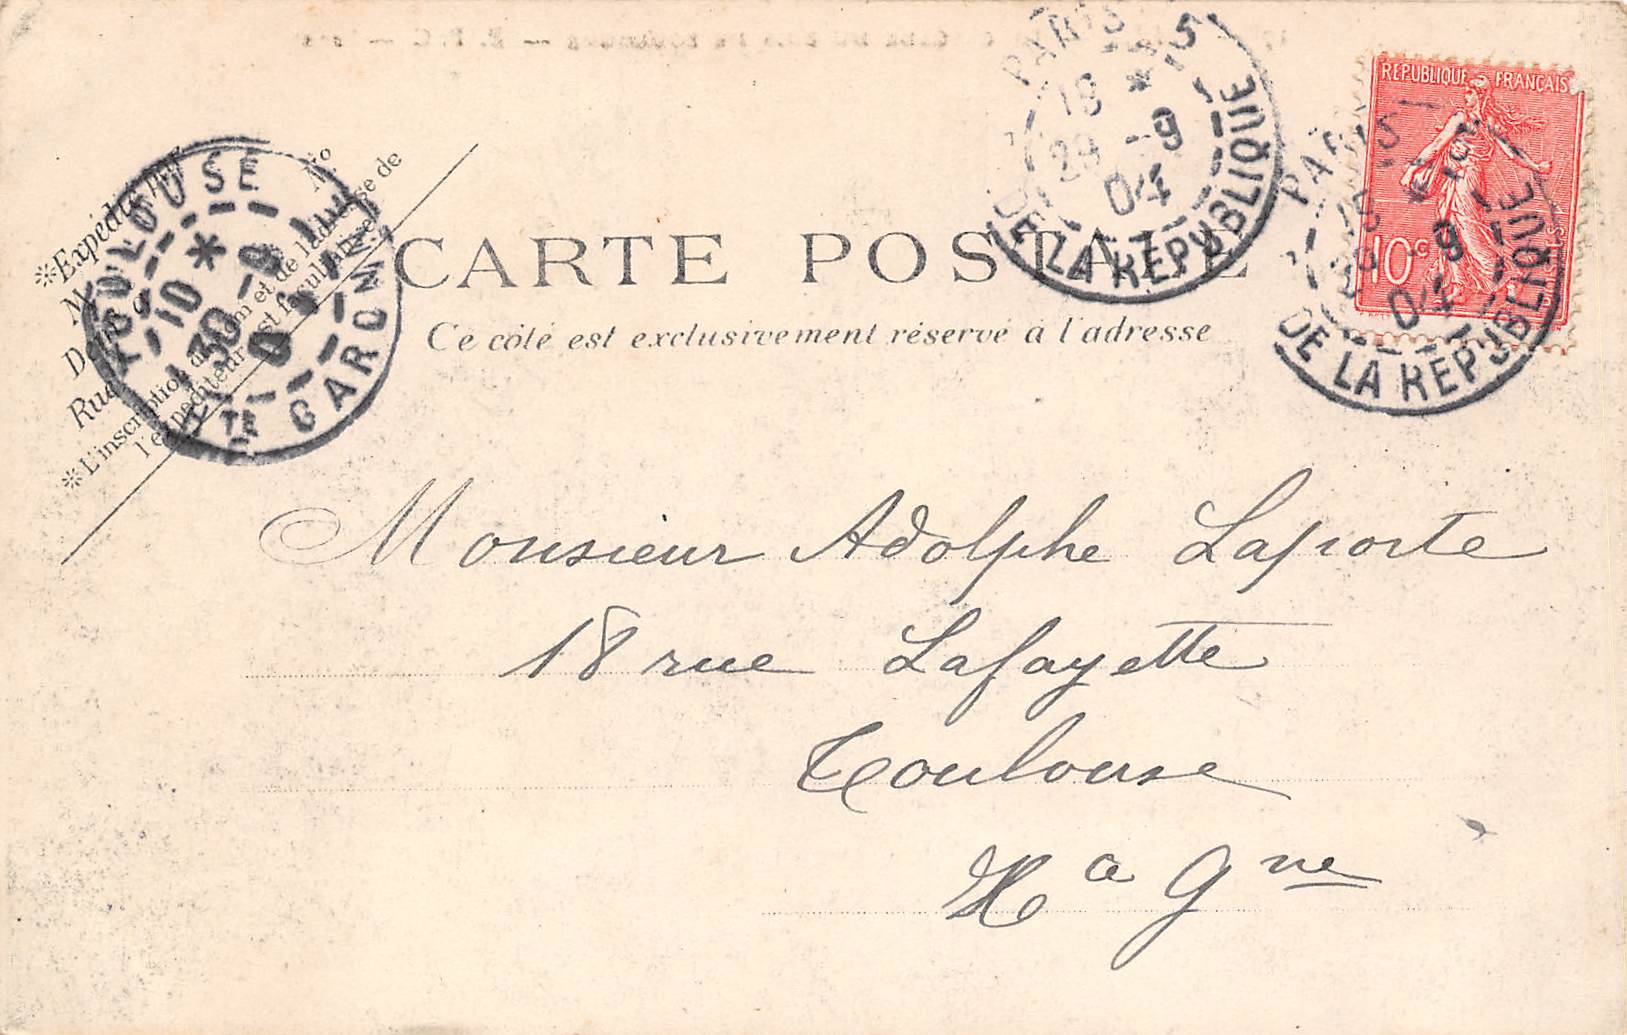 CARTE POSTALE
Ce côté est exclusivement réservé à l'adresse
RÉPUBLIQUE FRANÇAISE
10c
PARIS 5
19 *
29 -9
04
DE LA RÉPUBLIQUE
PARIS 5
-9
04
DE LA RÉPUBLIQUE
TOULOUSE
10 *
30 -9
04
HTE GARONNE
*Expédié par
M No
Rue
*L'inscription du nom et de l'adresse de
l'expéditeur est facultative
Monsieur Adolphe Laporte
18 rue Lafayette
Toulouse
Hª Gne